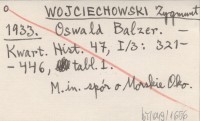 o WOJCIECHOWSKI Zygmunt
1933. Oswald Balzer. —
Kwart. Hist. 47, I/3: 321-
-446, tabl. 1.
M. in. spór o Morskie Oko.